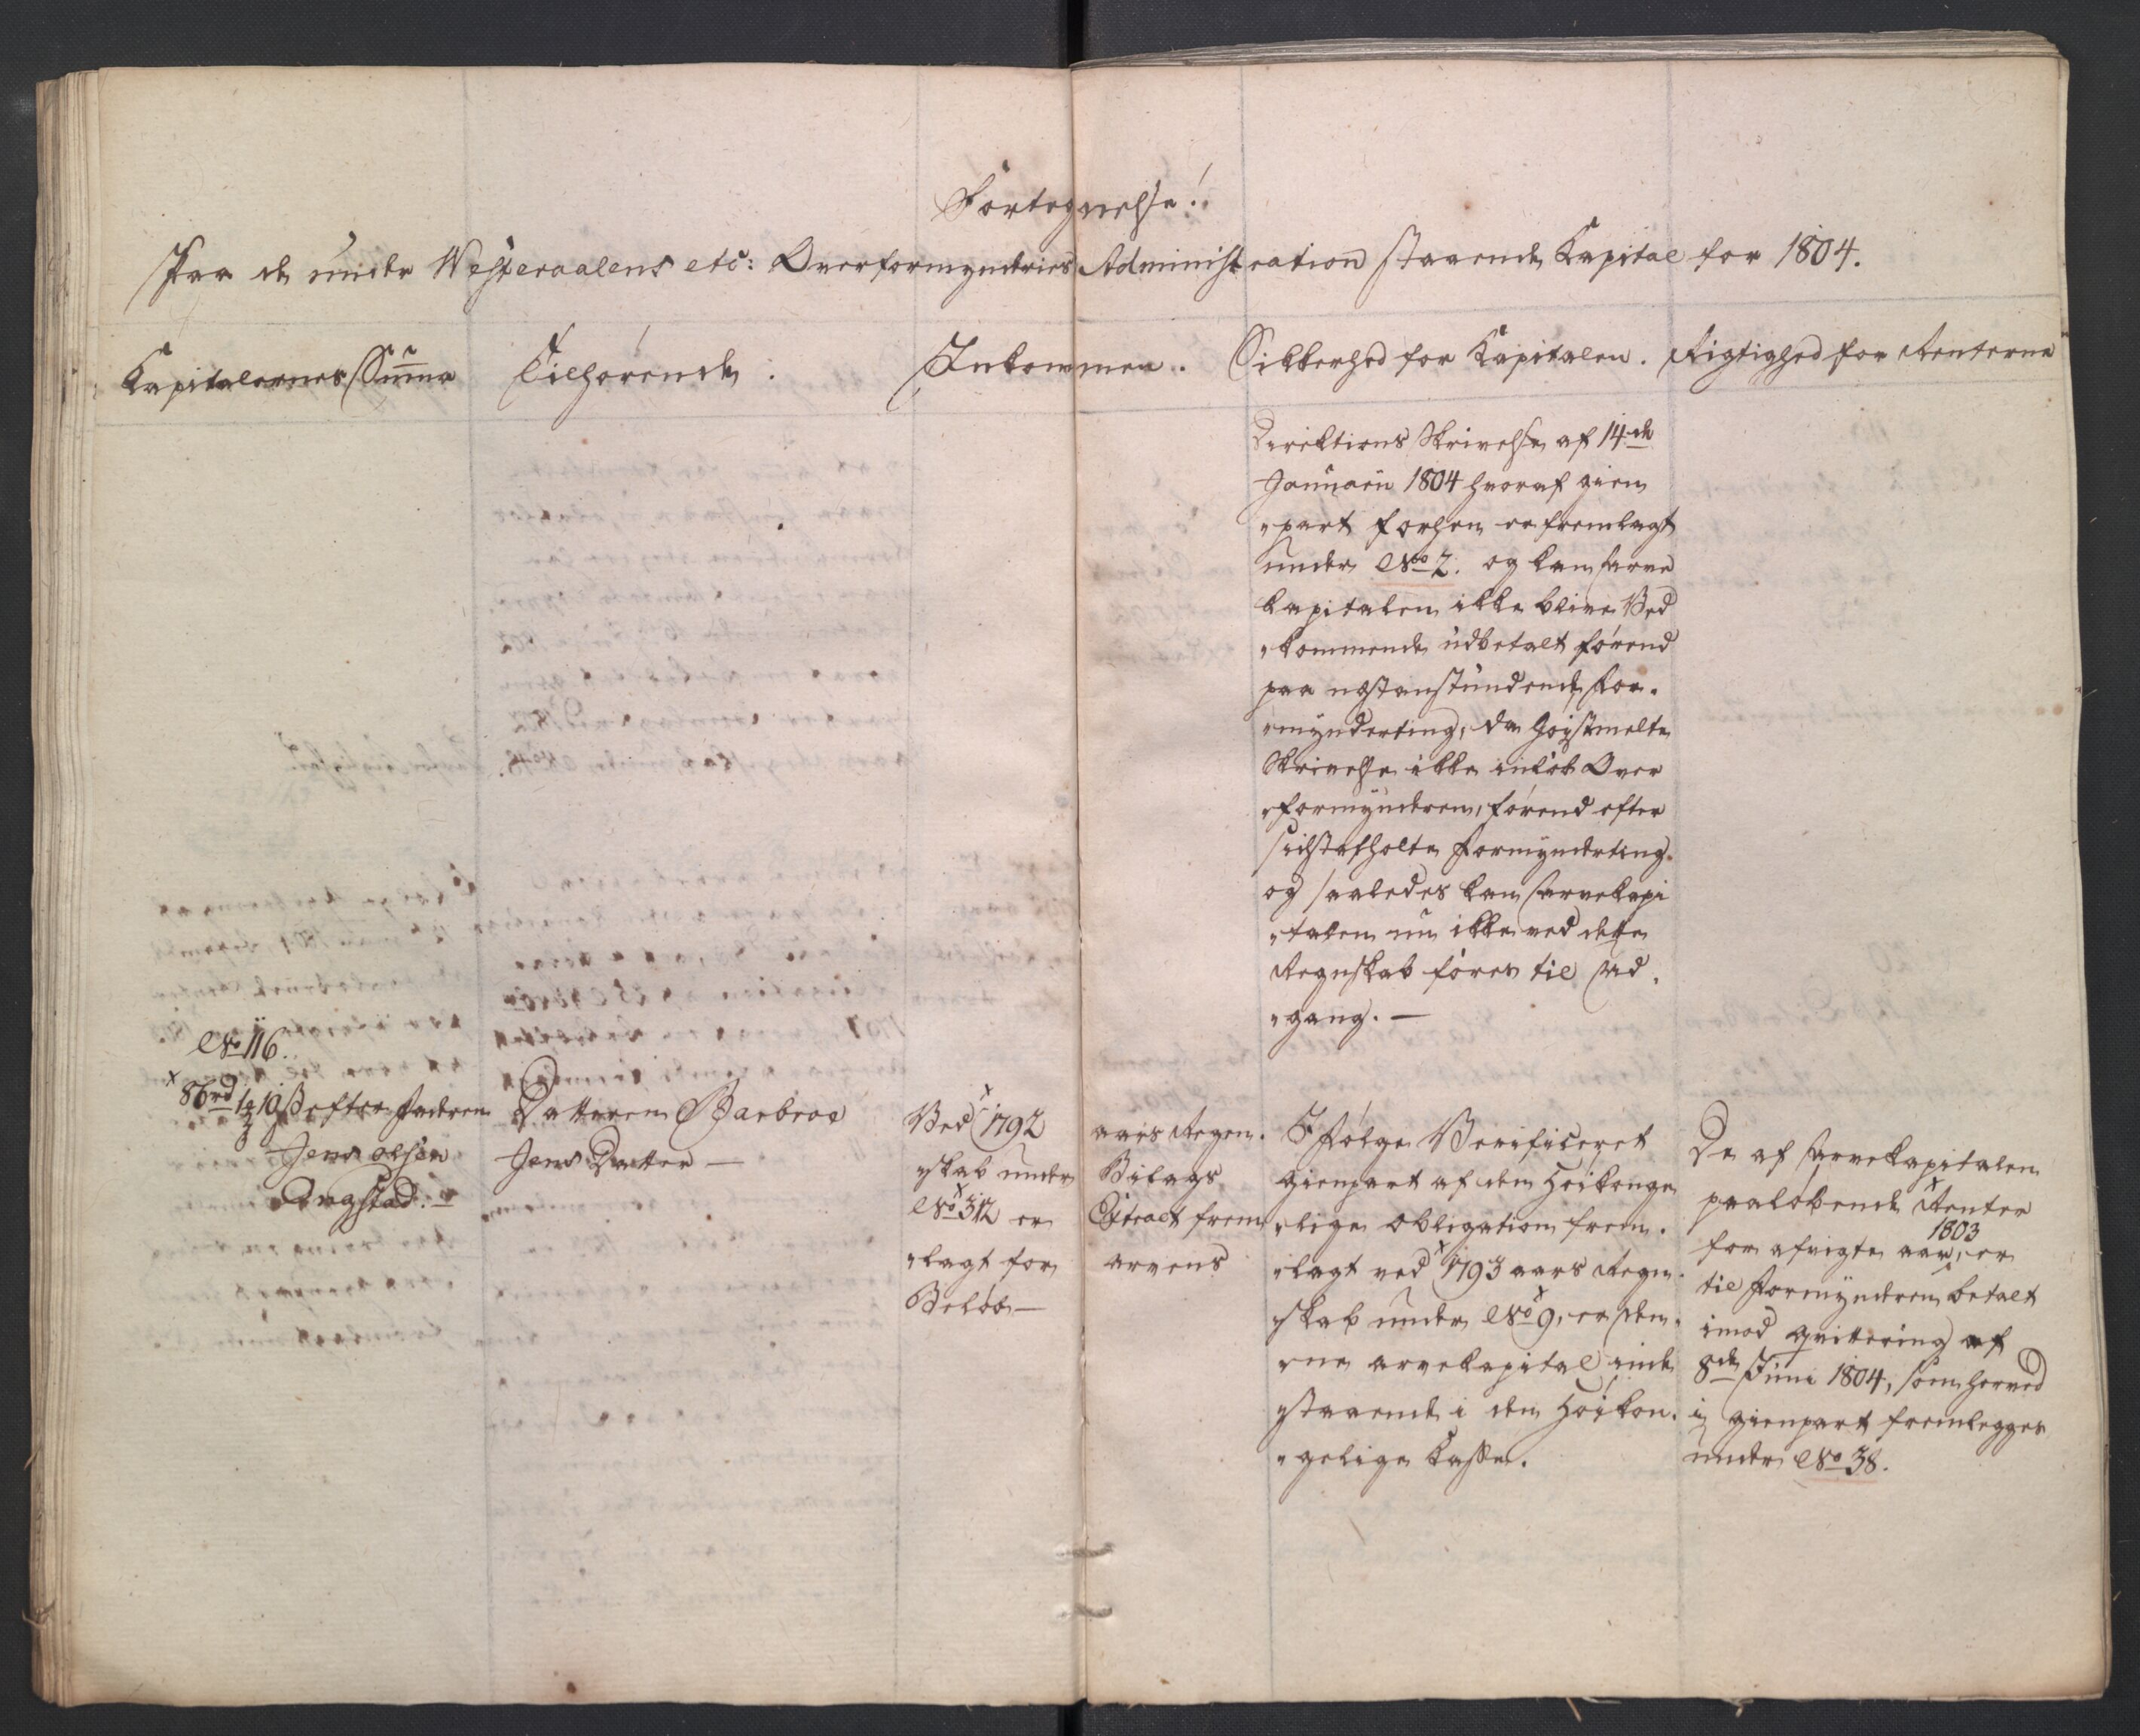 Fortegnelse!
Paa de under Vesteraalens etc: Overformynderies Administration staaende Kapital for 1804.
Kapitalernes Suma
Tilhørende.
Inkommen.
Sikkerhed for Kapitalen.
Rigtighed for Renterne
Direktions Skrivelse af 14de
Januarii 1804 hvoraf gien
"part forhen er fremlagt
under No 2. og kan Arve
kapitalen ikke blive Ved
"kommende udbetalt førend
paa nestanstundende For-
"mynderting, da høystmelte
Skrivelse ikke indløb Over
"formynderen, førend efter
sidstafholte Formynderting.
og saaledes kan Arvekapi
"talen nu ikke ved dette
Regnskab føres til Ud-
"gang. —
No 116.
86rd 1 10 ß efter Faderen
Jens Olsen
Ongstad.
Datteren Barbroe
Jens Datter —
Ved 1792 aars Regn-
"skab under Bilags
No 312 er Extract frem
"lagt for arvens
Beløb —
I Følge Verificeret
Gienpart af den Høikonge
"lige Obligation frem-
"lagt ved 1793 aars Regn-
"skab under No 9, er den-
"ne arvekapital inde
"staaende i den Høikon-
"gelige Kasse.
De af Arvekapitalen
paaløbende Renter
for afvigte aar 1803, er
til Formynderen betalt
imod qvittering af
8de Juni 1804, som herved
i gienpart fremlegges
under No 38.